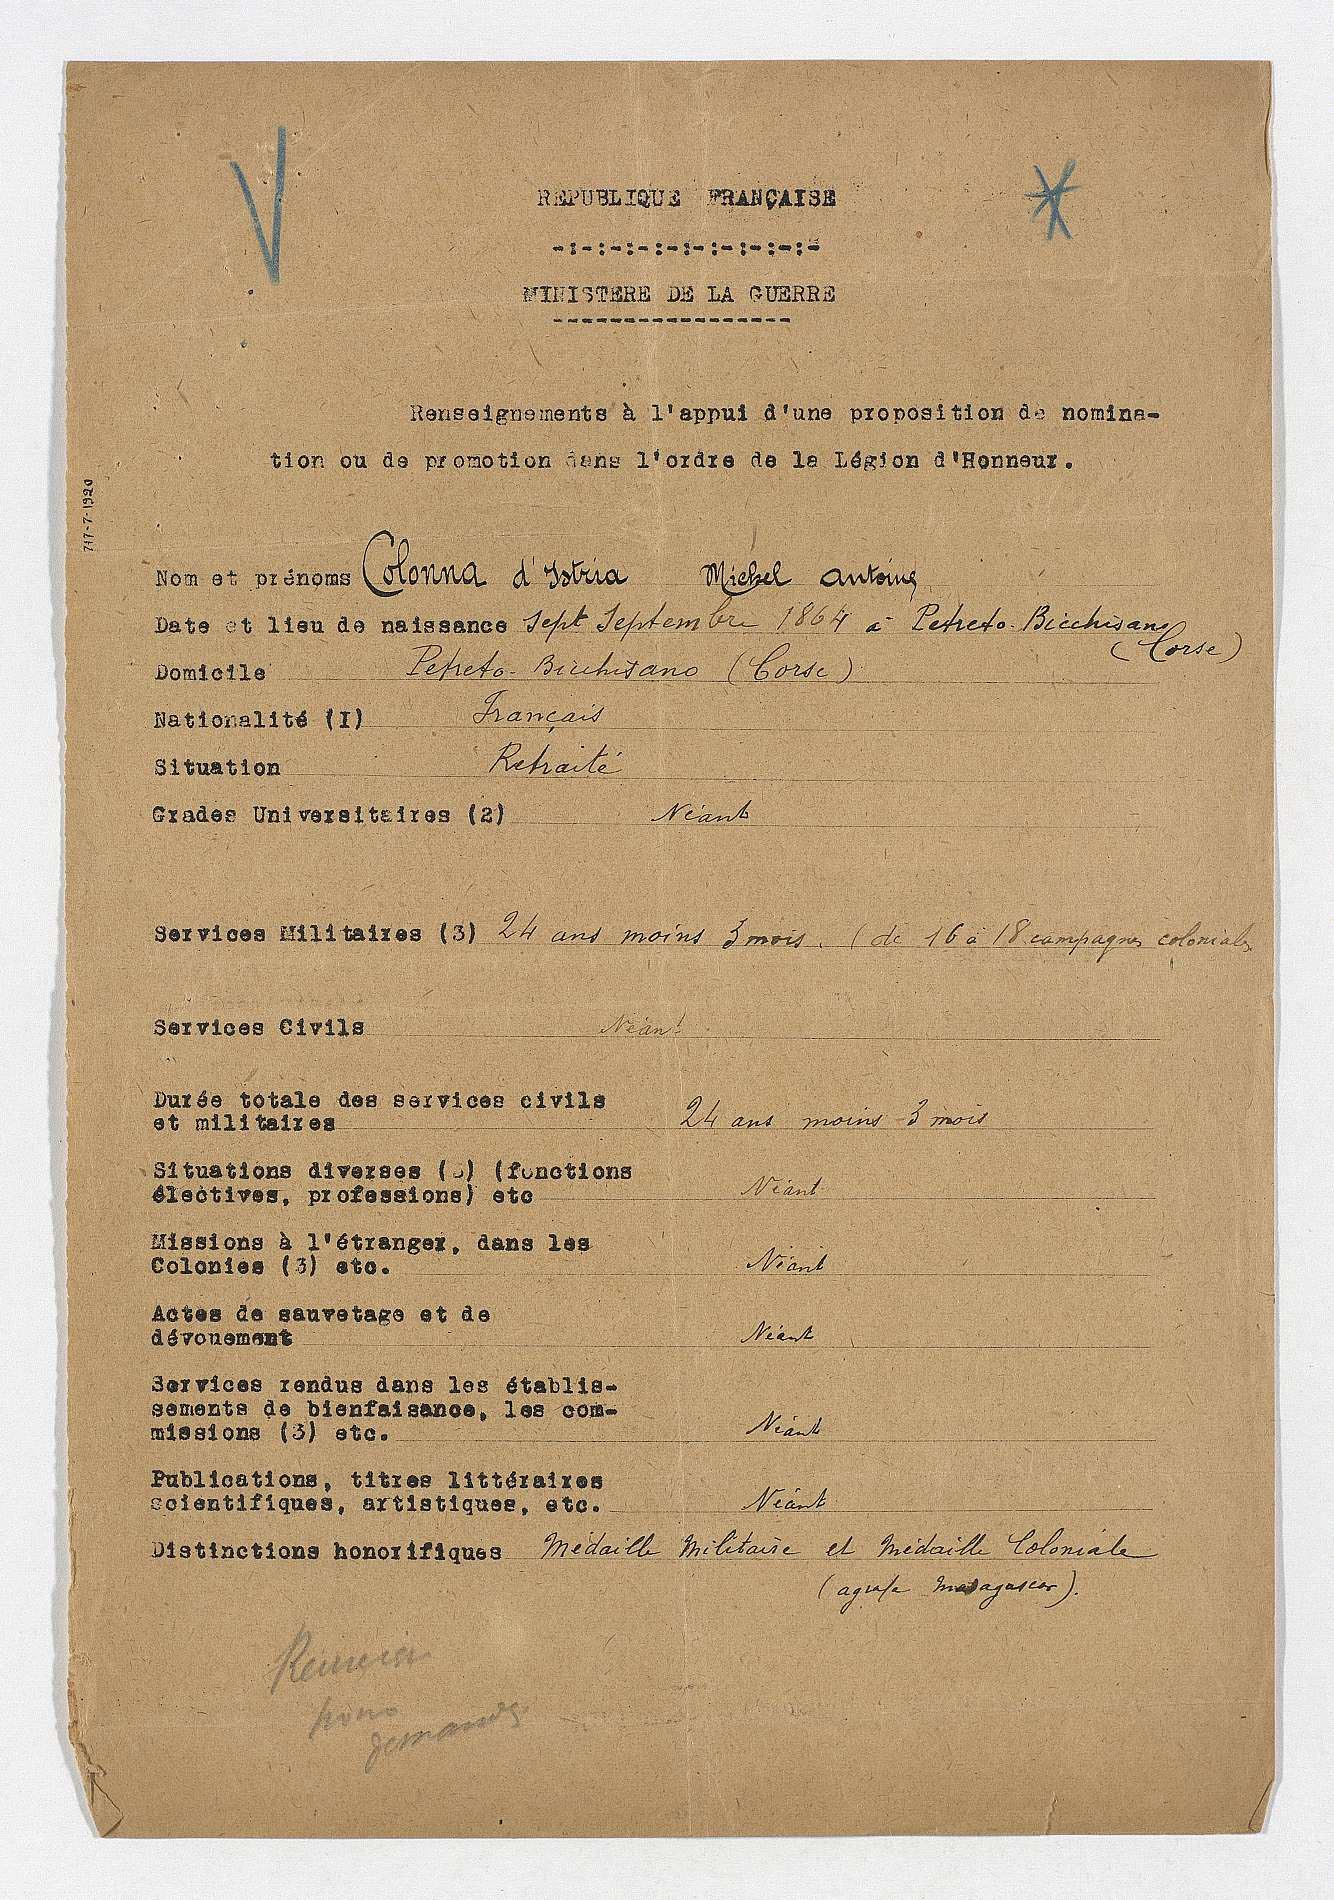 REPUBLIQUE FRANÇAISE
-:-:-:-:-:-:-:-:-:-
MINISTERE DE LA GUERRE
-----------------
Renseignements à l'appui d'une proposition de nomina-
tion ou de promotion dans l'ordre de la Légion d'Honneur.
717-7-1920
Nom et prénoms Colonna d'Istria Michel Antoine
Date et lieu de naissance Sept Septembre 1864 à Petreto-Bicchisano
(Corse)
Domicile Petreto-Bicchisano (Corse)
Nationalité (I) Français
Situation Retraité
Grades Universitaires (2) Néant
Services Militaires (3) 24 ans moins 3 mois. (de 16 à 18 campagnes coloniales
Services Civils Néant
Durée totale des services civils
et militaires 24 ans moins 3 mois
Situations diverses (3) (fonctions
électives, professions) etc Néant
Missions à l'étranger, dans les
Colonies (3) etc. Néant
Actes de sauvetage et de
dévouement Néant
Services rendus dans les établis-
sements de bienfaisance, les com-
missions (3) etc. Néant
Publications, titres littéraires
scientifiques, artistiques, etc. Néant
Distinctions honorifiques Médaille Militaire et Médaille Coloniale
(agrafe Madagascar).